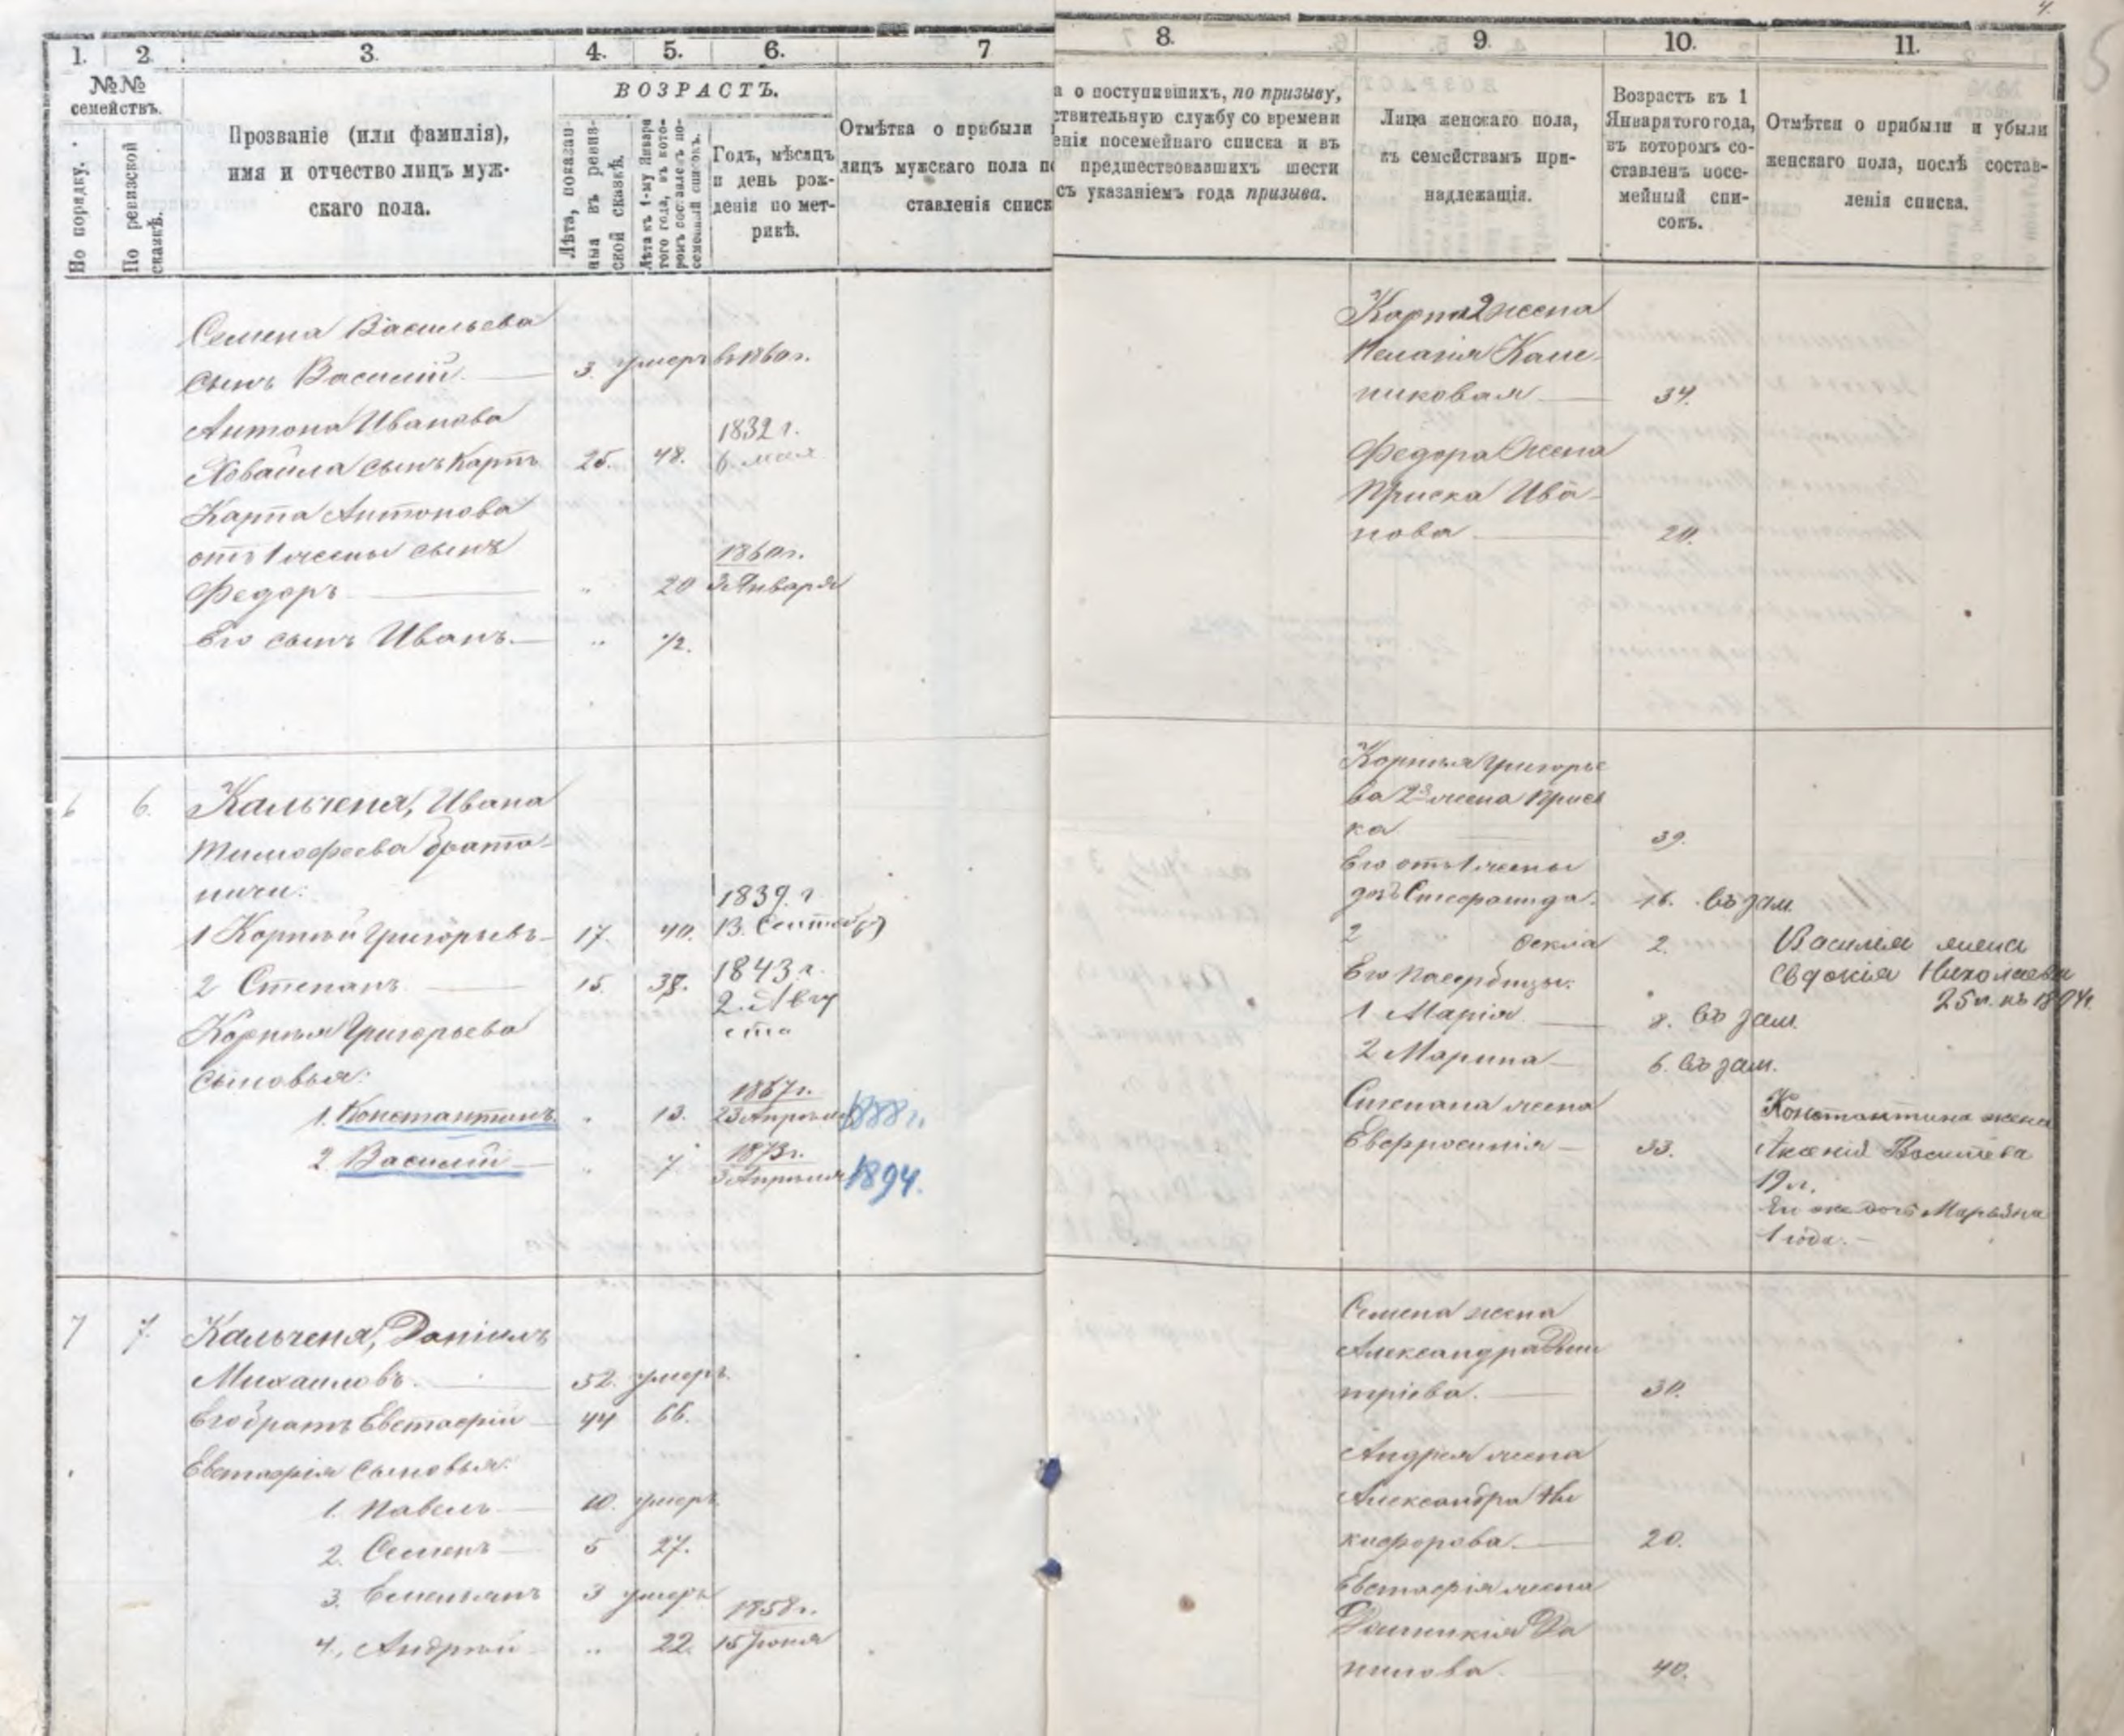 4.
1. 2. 3. 4. 5. 6. 7 8. 9. 10. 11.
№№ семействъ.
По порядку.
По ревизской сказкѣ.
Прозваніе (или фамилія),
имя и отчество лицъ муж-
скаго пола.
ВОЗРАСТЪ.
Лѣта, показан-
ныя въ ревиз-
ской сказкѣ.
Лѣта къ 1-му Января
того года, въ кото-
ромъ составленъ по-
семейный списокъ.
Годъ, мѣсяцъ
и день рож-
денія по мет-
рикѣ.
Отмѣтка о прибыли
лицъ мужскаго пола по
ставленія списк
а о поступившихъ, по призыву,
ствительную службу со времени
енія посемейнаго списка и въ
предшествовавшихъ шести
съ указаніемъ года призыва.
Лица женскаго пола,
къ семействамъ при-
надлежащія.
Возрастъ къ 1
Января того года,
въ которомъ со-
ставленъ посе-
мейный спи-
сокъ.
Отмѣтки о прибыли и убыли
женскаго пола, послѣ состав-
ленія списка.
Семена Васильева
сынъ Василій. 3. умеръ въ 1860 г.
Антона Иванова
сынъ Карпъ 25. 48. 1832 г.
6. мая
Карпа Антонова
отъ 1 жены сынъ
Федоръ " 20 1860 г.
3 Января
Его сынъ Иванъ. " 1/2.
Карпа 2 жена
Пелагія
никовая 34.
Федора жена
Приска Ива-
нова 20.
6 6. Кальченя, Ивана
Тимофеева
1 Корнѣй Григорьевъ 17. 40. 1839. г
13. Сентябр
2 Степанъ 15. 1843 г.
2. Авгу
ста
Корнѣя Григорьева
сыновья:
1. Константинъ " 13. 1867 г.
23 Апрѣля 1888 г.
2. Василій " 7 1873 г.
3 Апрѣля 1894.
Корнѣя Григорье
ва 2я жена Прись
ка 39.
Его отъ 1 жены
дочь 16. въ зам.
2 2.
Его
1. Марія 8. въ зам.
2 Марина 6. въ зам.
Степана жена
Евфросинія 33.
Василія жена
Евдокія Николаева
25 л. къ 1894 г.
Константина жена
Аксенія Васильева
19 л.
дочь Марьяна
1 года.
7 7. Кальченя, Даніилъ
Михаиловъ. 52. умеръ.
Его братъ Евстафій 44 66.
Евстафія сыновья:
1. Павелъ 10. умеръ.
2. Семенъ 5 27.
3. Емельянъ 3 умеръ
4. Андрѣй " 22. 1858 г.
15 Іюня
Семена жена
Александра Дми
тріева. 30.
Андрея жена
Александра Ни
кифорова. 20.
Евстафія жена
Домникія Да
нилова. 40.